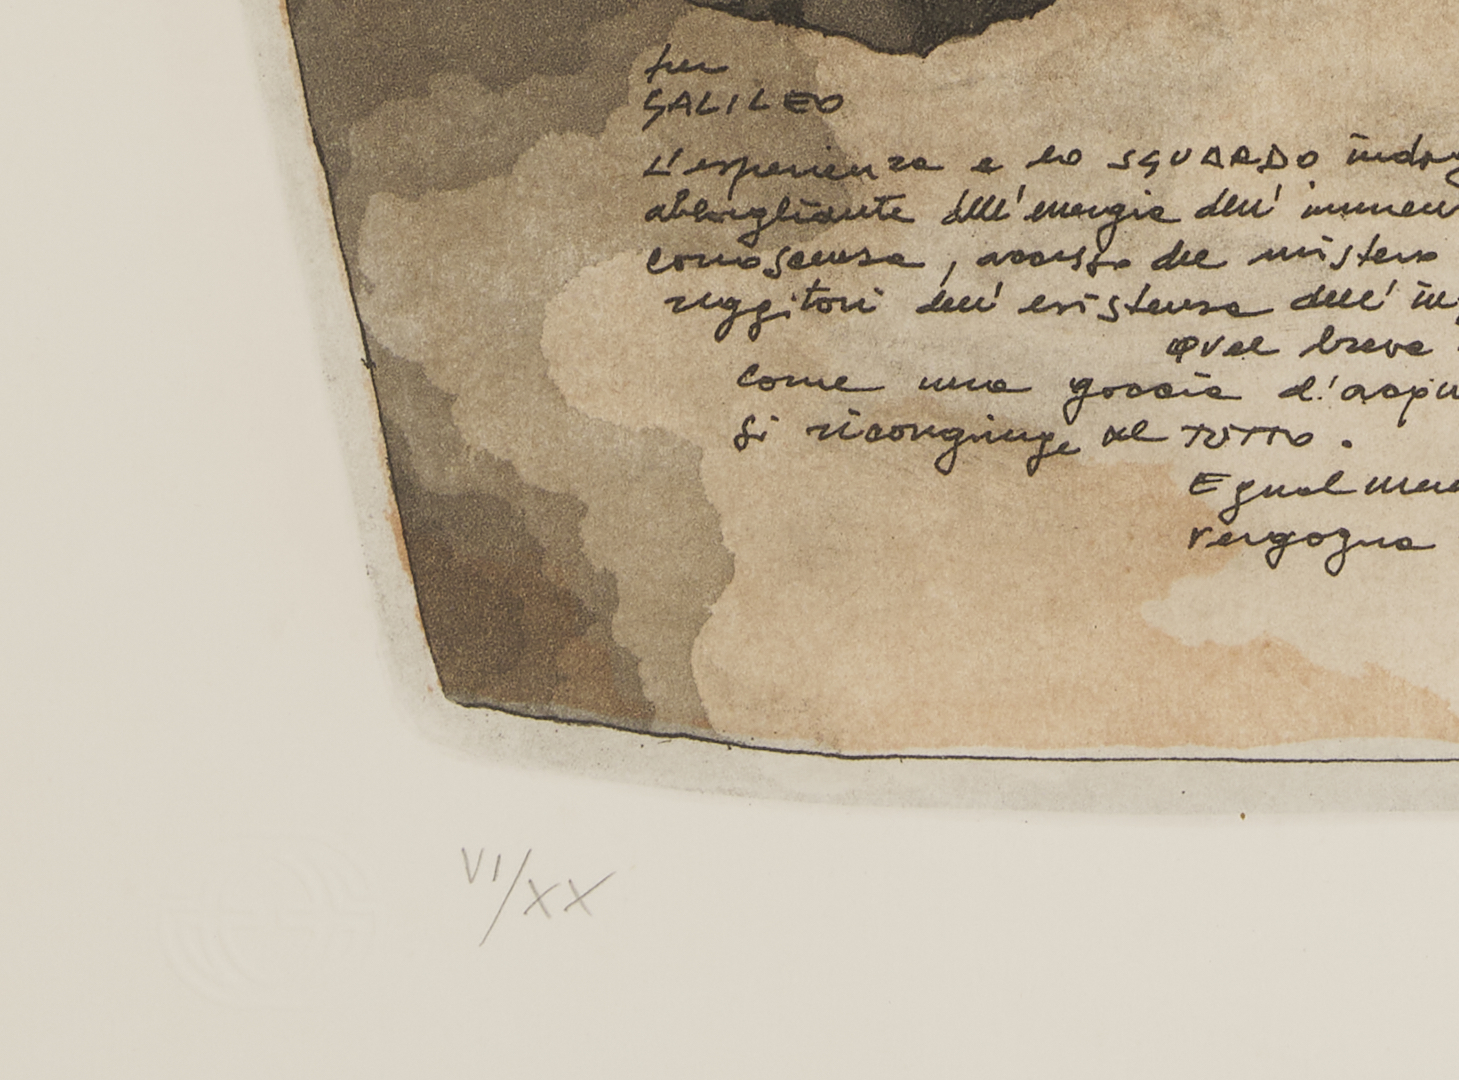 per
GALILEO
L'esperienza e lo SGUARDO
abbagliante dell'energia dell'
conoscenza, accesso del mistero
dell'esistenza dell'
Quel breve
come una goccia d'acqu
si ricongiunge al TUTTO.
Egual
vergogna
VI/XX